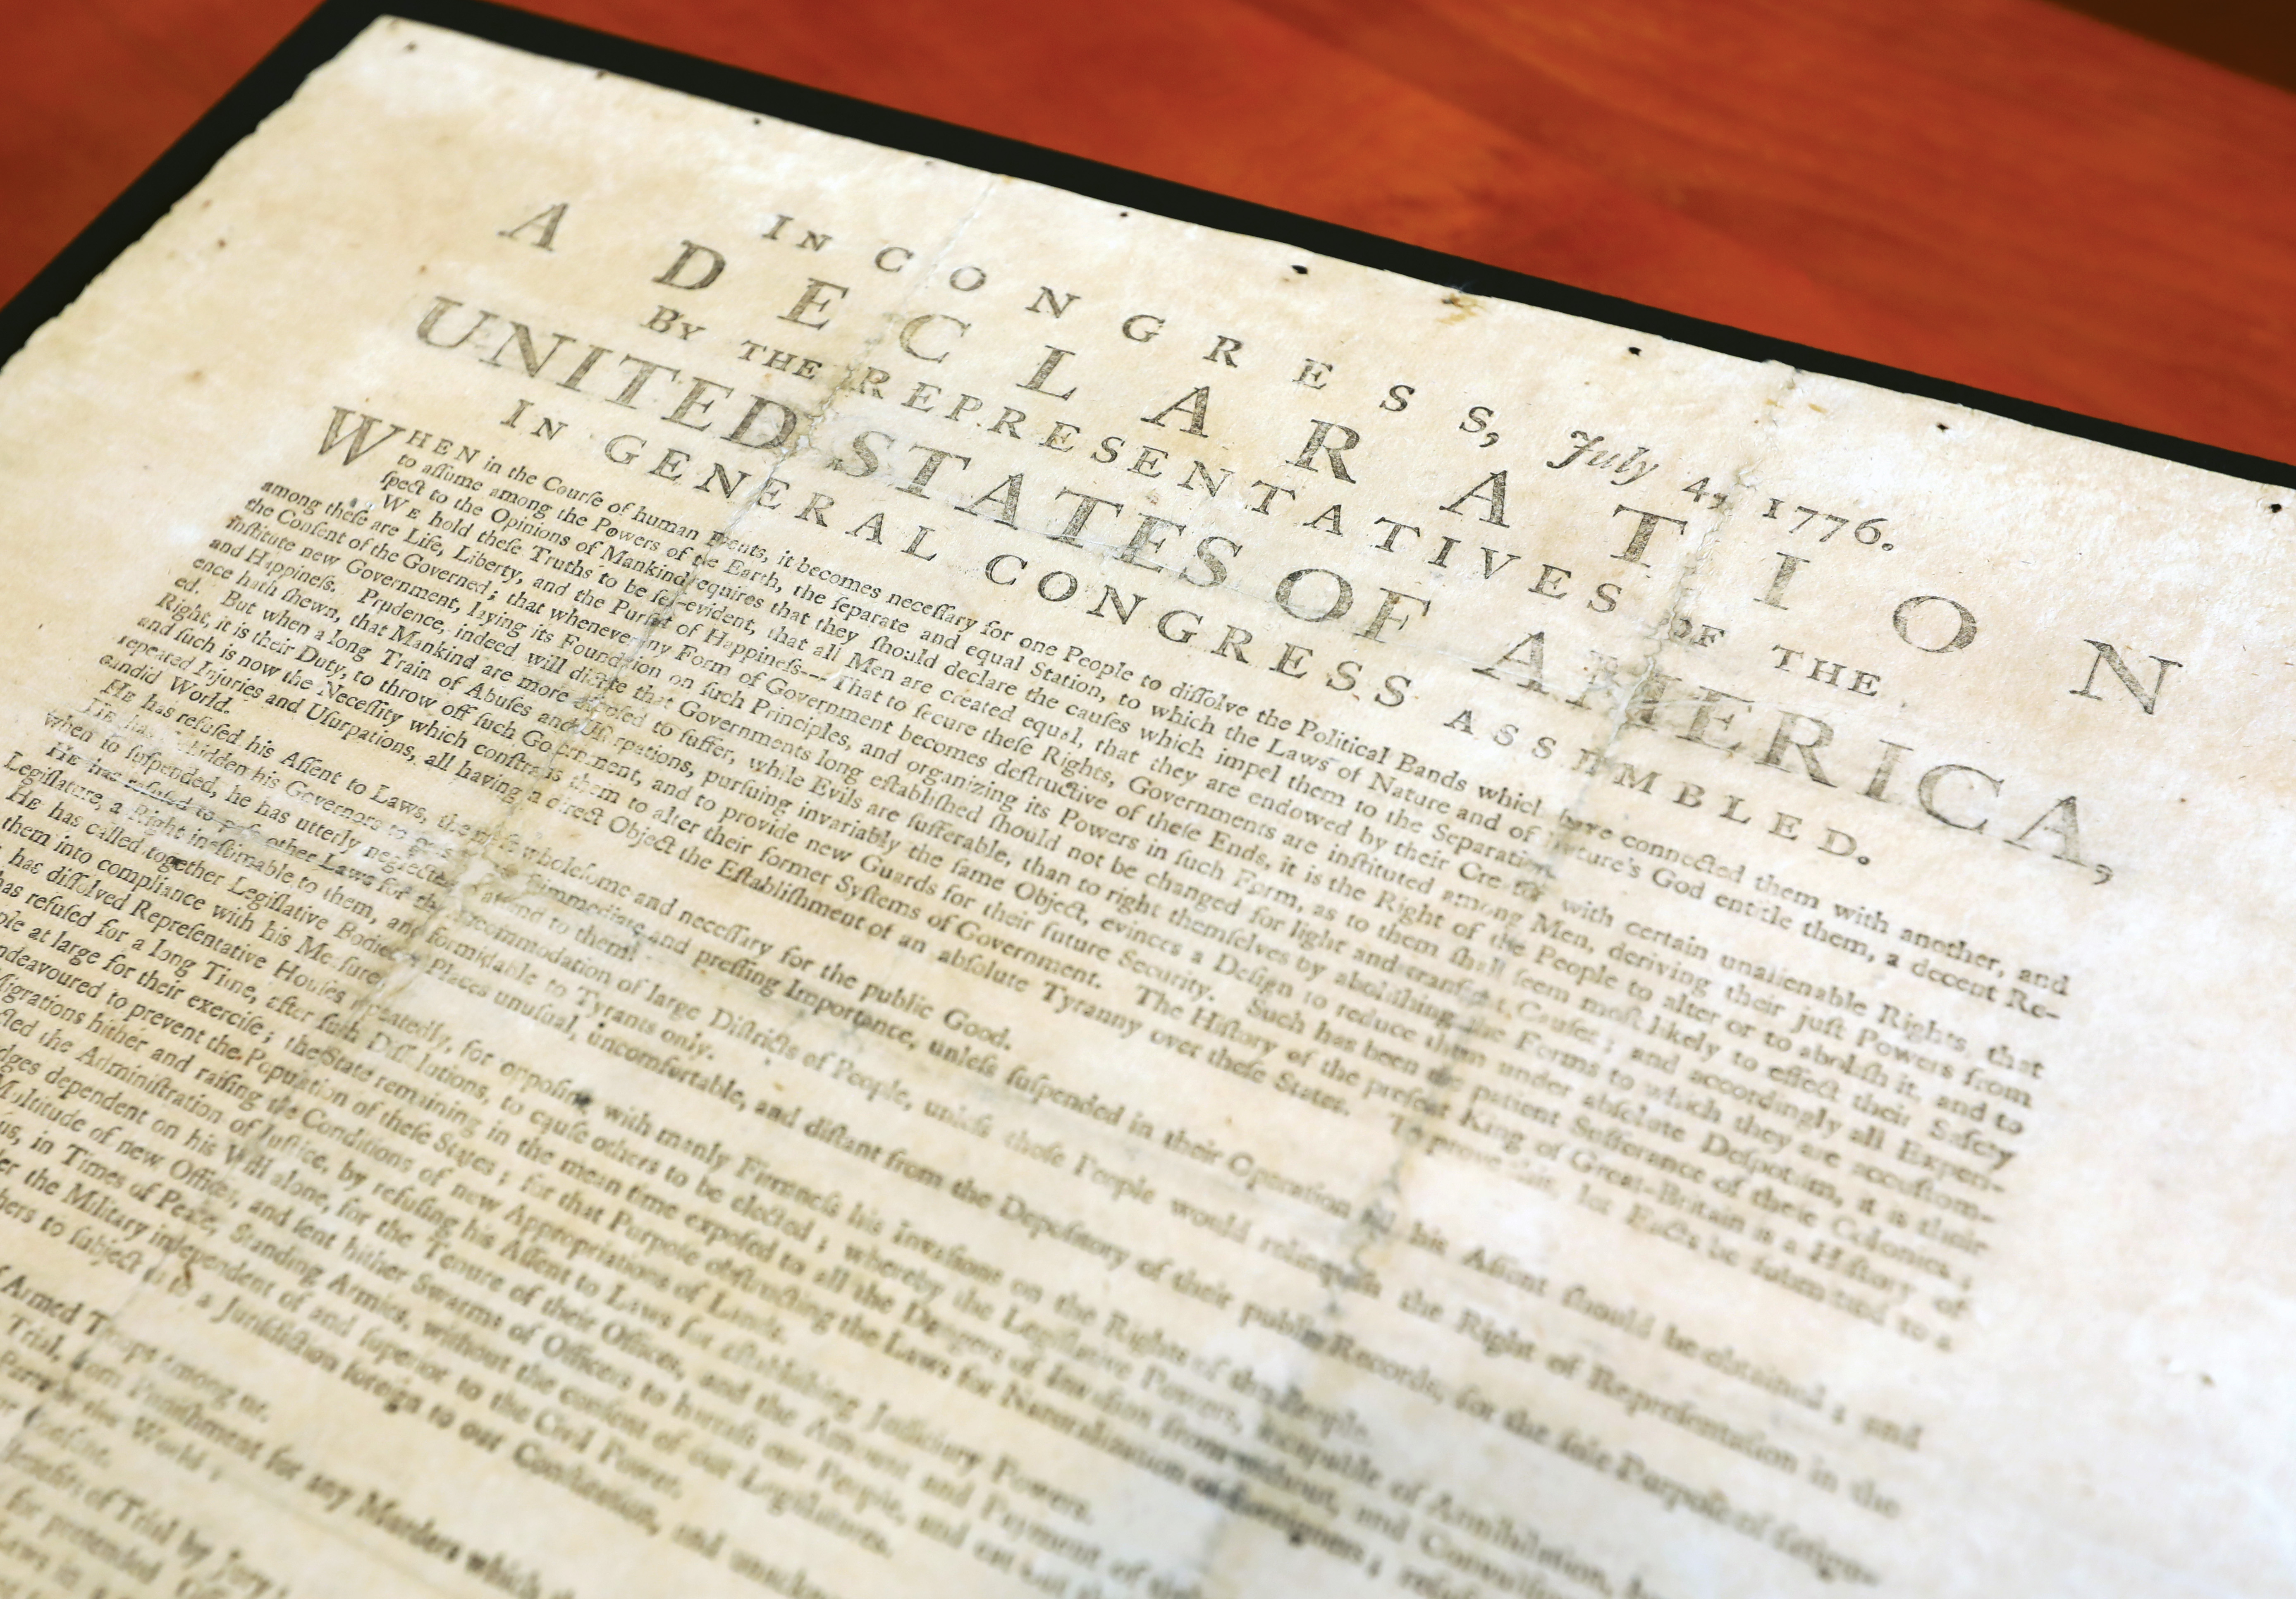 IN CONGRESS, July 4, 1776.
A DECLARATION
BY THE REPRESENTATIVES OF THE
UNITED STATES OF AMERICA,
IN GENERAL CONGRESS ASSEMBLED.
WHEN in the Courſe of human Events, it becomes neceſſary for one People to diſſolve the Political Bands which have connected them with another, and
to aſſume among the Powers of the Earth, the ſeparate and equal Station, to which the Laws of Nature and of Nature's God entitle them, a decent Re-
ſpect to the Opinions of Mankind requires that they ſhould declare the cauſes which impel them to the Separation.
WE hold theſe Truths to be ſelf-evident, that all Men are created equal, that they are endowed by their Creator with certain unalienable Rights, that
among theſe are Life, Liberty, and the Purſuit of Happineſs--- That to ſecure theſe Rights, Governments are inſtituted among Men, deriving their juſt Powers from
the Conſent of the Governed; that whenever any Form of Government becomes deſtructive of theſe Ends, it is the Right of the People to alter or to aboliſh it, and to
inſtitute new Government, laying its Foundation on ſuch Principles, and organizing its Powers in ſuch Form, as to them ſhall ſeem moſt likely to effect their Safety
and Happineſs. Prudence, indeed, will dictate that Governments long eſtabliſhed ſhould not be changed for light and tranſient Cauſes; and accordingly all Experi-
ence hath ſhewn, that Mankind are more diſpoſed to ſuffer, while Evils are ſufferable, than to right themſelves by aboliſhing the Forms to which they are accuſtom-
ed. But when a long Train of Abuſes and Uſurpations, purſuing invariably the ſame Object, evinces a Deſign to reduce them under abſolute Deſpotiſm, it is their
Right, it is their Duty, to throw off ſuch Government, and to provide new Guards for their future Security. Such has been the patient Sufferance of theſe Colonies;
and ſuch is now the Neceſſity which conſtrains them to alter their former Syſtems of Government. The Hiſtory of the preſent King of Great-Britain is a Hiſtory of
repeated Injuries and Uſurpations, all having in direct Object the Eſtabliſhment of an abſolute Tyranny over theſe States. To prove this, let Facts be ſubmitted to a
candid World.
HE has refuſed his Aſſent to Laws, the moſt wholeſome and neceſſary for the public Good.
HE has forbidden his Governors to paſs Laws of immediate and preſſing Importance, unleſs ſuſpended in their Operation till his Aſſent ſhould be obtained; and
when ſo ſuſpended, he has utterly neglected to attend to them.
HE has refuſed to paſs other Laws for the accommodation of large Diſtricts of People, unleſs thoſe People would relinquiſh the Right of Repreſentation in the
Legiſlature, a Right ineſtimable to them, and formidable to Tyrants only.
HE has called together Legiſlative Bodies at Places unuſual, uncomfortable, and diſtant from the Depoſitory of their public Records, for the ſole Purpoſe of fatigu-
them into compliance with his Meaſures.
has diſſolved Repreſentative Houſes repeatedly, for oppoſing with manly Firmneſs his Invaſions on the Rights of the People.
has refuſed for a long Time, after ſuch Diſſolutions, to cauſe others to be elected; whereby the Legiſlative Powers, incapable of Annihilation,
at large for their exerciſe; the State remaining in the mean time expoſed to all the Dangers of Invaſion from without, and
endeavoured to prevent the Population of theſe States; for that Purpoſe obſtructing the Laws for Naturalization of Foreigners;
hither and raiſing the Conditions of new Appropriations of Lands.
the Adminiſtration of Juſtice, by refuſing his Aſſent to Laws for eſtabliſhing Judiciary Powers.
dependent on his Will alone, for the Tenure of their Offices, and the Amount and Payment of
Multitude of new Offices, and ſent hither Swarms of Officers to harraſs our People, and eat out
us, in Times of Peace, Standing Armies, without the conſent of our Legiſlatures.
the Military independent of and ſuperior to the Civil Power.
to ſubject us to a Juriſdiction foreign to our Conſtitution, and
Armed Troops among us.
Trial, from Puniſhment for any Murders which
of the World:
of Trial by Jury:
for pretended